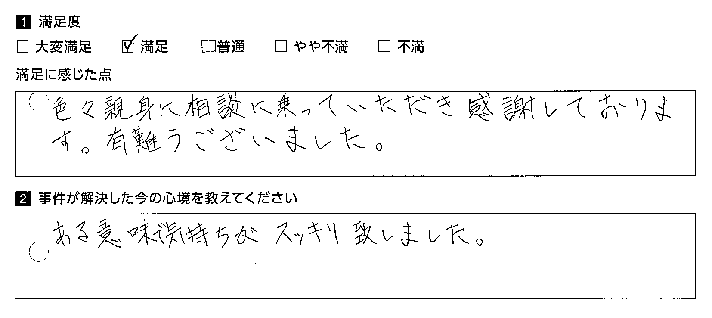 1 満足度
□ 大変満足 ☑ 満足 □ 普通 □ やや不満 □ 不満
満足に感じた点
色々親身に相談に乗っていただき感謝しておりま
す。有難うございました。
2 事件が解決した今の心境を教えてください
ある意味気持ちが スッキリ致しました。